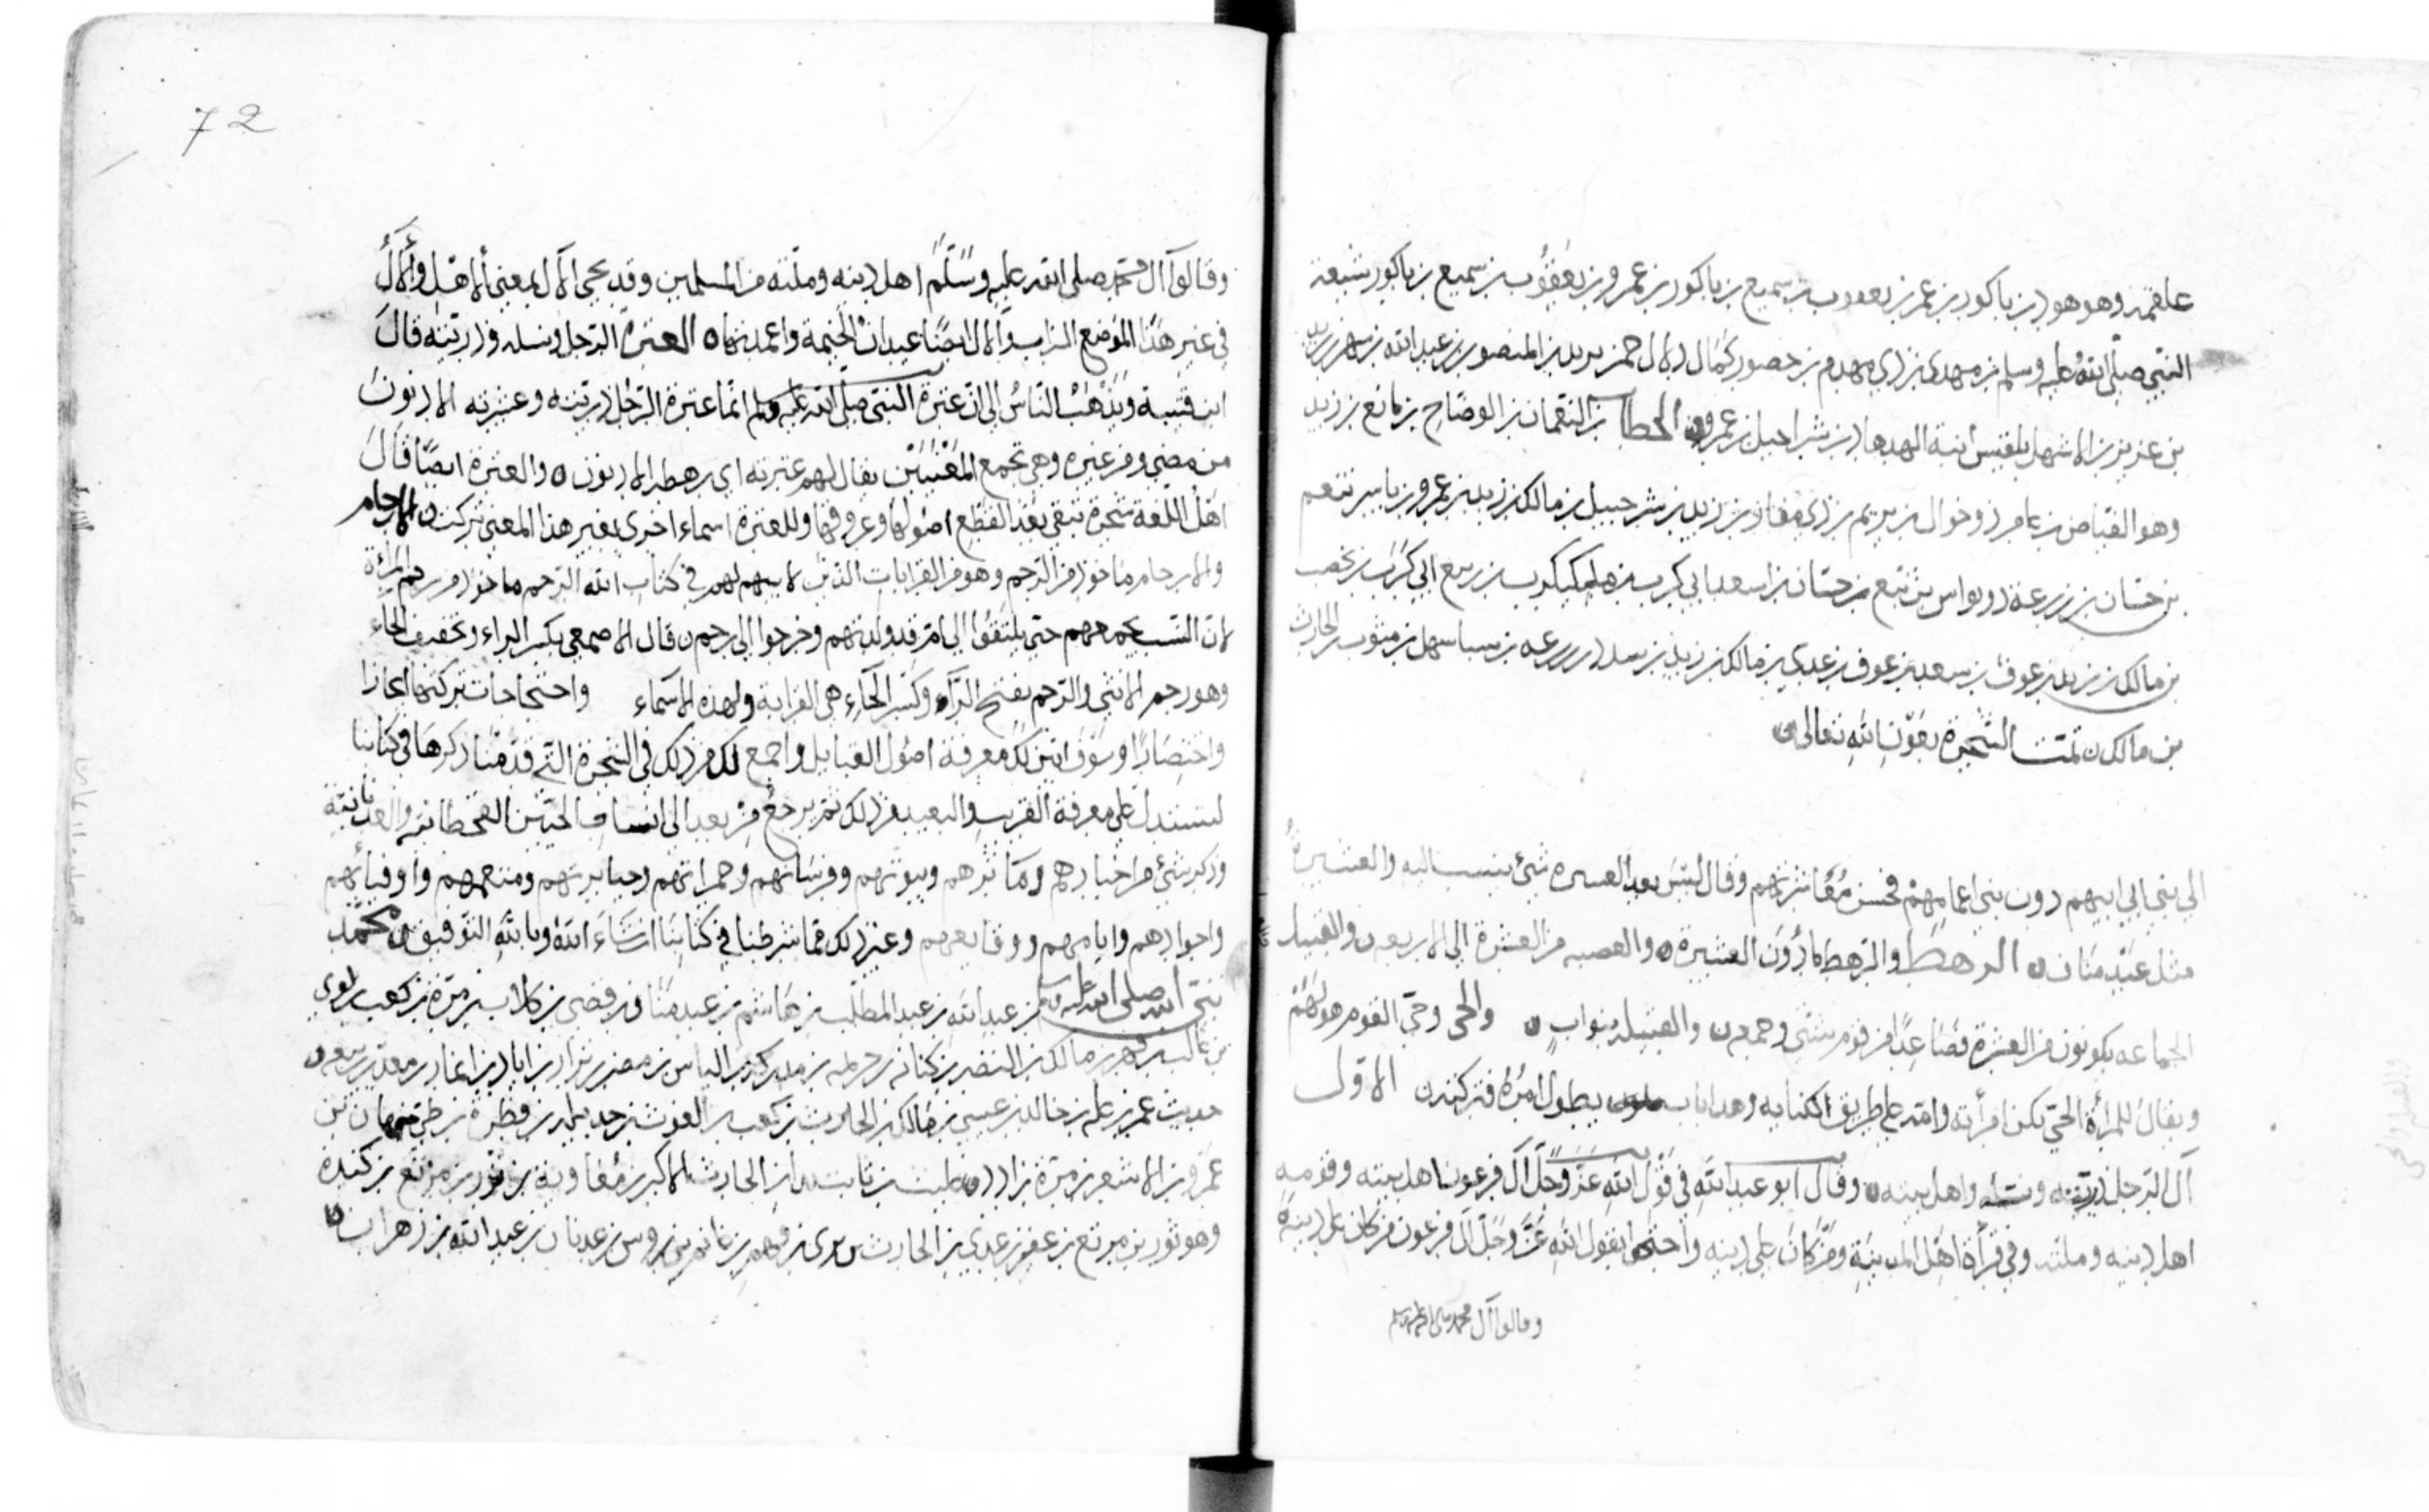 علقمة وهو هود بن ياكور بن عمر بن يعقوب بن سميع بن ياكور بن عمرو بن يعقوب بن سميع بن ياكور شيعة
النبي صلى الله عليه وسلم بن مهدي بن ذي مهدم بن حصور بن عبد الله بن
بن عزيز بن الاشهل بلقيس ابنة الهدهاد بن شراحيل بن عمرو الحطاب بن النعمان بن الوضاح بن مانع بن زيد
وهو الفياض بن عامر ذو خوال بن يريم بن ذي مغار بن زيد بن شرحبيل بن مالك بن زيد بن عمرو بن ياسر ننعم
بن حسان بن زرعة ذو نواس بن تبع بن حسان بن اسعد ابي كرب بن ملكيكرب بن تبع ابي كرب بن يحصب
بن مالك بن زيد بن عوف بن سعد بن عوف بن عدي بن مالك بن زيد بن سدد بن زرعه بن سبا سهل بن مثوب بن الحارث
بن مالك ن تمت الشجرة بعون الله تعالى ن
الى بني ابي ابيهم دون بني اعمامهم فحسن معاشرتهم وقال ليس بعد العسيره شئ ينسب اليه والعشيرة
مثل عبد مناف ن الرهط والرهط مادون العشيرة ن والعصبه من العشرة الى الاربعين والقبيل
الجماعه يكونون من العشرة فصاعدا من قوم شتى وجمعه ن والقبيلة بنو اب ن والحي وحي القوم هو لهم
ويقال للمرأة الحي يكن امرأته وامته على طريق الكنايه وهذا باب يطول امره فتركته ن الاول
آل الرجل ذريته ونسله واهل بيته ن وقال ابو عبد الله في قول الله عز وجل آل فرعون اهل بيته وقومه
اهل دينه وملته وفي قرأة اهل المدينة ومن كان على دينه واحتجوا بقول الله عز وجل آل فرعون من كان على دينه
وقالوا آل محمد صلى الله عليه وسلم
72
وقالوا آل محمد صلى الله عليه وسلم اهل دينه وملته من المسلمين وقد يجى الآل بمعنى الاهل والآل
في غير هذا الموضع السراب والال ايضا عيدان الخيمة واعمدتها ن العترة الرجل ونسله وذريته قال
ابن قتيبة ويذهب الناس الى ان عترة النبي صلى الله عليه وسلم انما عترة الرجل ذريته وعشيرته الادنون
من مضى ومن غبره وهي تجمع المعنيين يقال لهم عترته اي رهطه الادنون ن والعترة ايضا قال
اهل اللغة شجرة تبقى بعد القطع اصولها وعروقها وللعترة اسماء اخرى بغير هذا المعنى تركت ن الارحام
والارحام ماخوذ من الرحم وهو من القرابات الذين لا سهم لهم في كتاب الله الرحم ماخوذ من رحم المرأة
لان النسب يجمعهم حتى يلتقوا الى ام قد ولدتهم وخرجوا الى رحم ن قال الاصمعي بكسر الراء وتخفيف الحاء
وهو رحم الانثى والرحم بفتح الراء وكسر الحاء هي القرابة ولهذه الاسماء واحتجاجات تركتها ايجازا
واختصارا وسوف ابين لك معرفة اصول القبايل واجمع لك من ذلك في الشجرة التي قدمنا ذكرها في كتابنا
لتستدل على معرفة القريب والبعيد من ذلك ثم يرجع من بعد الى انساب الحيين القحطانية والعدنانية
وذكر شئ من اخبارهم ومآثرهم وبيوتهم وفرسانهم وجمراتهم وجبابرتهم ومنعمهم واوفيائهم
واجوادهم وايامهم ووقايعهم وغير ذلك مما شرطنا في كتابنا ان شاء الله وبالله التوفيق ن محمد
نبي الله صلى الله عليه بن عبد الله بن عبد المطلب بن هاشم بن عبد مناف بن قصي بن كلاب بن مرة بن كعب بن لوي
بن غالب بن فهر بن مالك بن النضر بن كنانه بن خزيمه بن مدركه بن الياس بن مضر بن نزار بن اياد بن انمار بن معد بن ربيعه ن
حديث عمر بن علي بن خالد بن عيسى بن مالك بن الحارث بن كعب بن الغوث بن جديله بن فطرة بن طي
عمرو بن الاشعر بن مرة بن ادد ن بن ثابت بن الحارث الاكبر بن معاوية بن ثور بن مرتع بن كندة
وهو ثور بن مرتع بن عفير بن عدي بن الحارث بن مرة بن بن عدنان بن عبد الله بن زهران ن